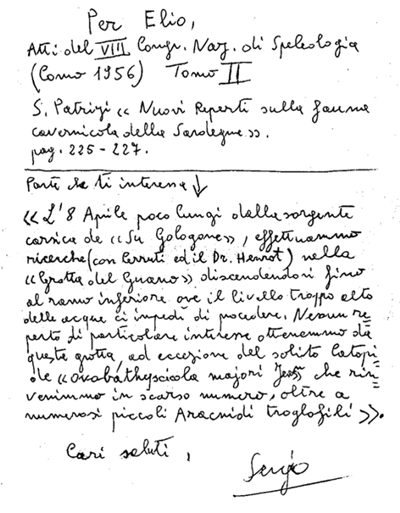 Per Elio,
Atti del VIII Congr. Naz. di Speleologia
(Como 1956) Tomo II
S. Patrizi « Nuovi Reperti sulla fauna
cavernicola della Sardegna ».
pag. 225 - 227.
Parte che ti interessa ↓
« L'8 Aprile poco lungi dalla sorgente
carsica de « Su Gologone », effettuammo
ricerche (con Cerruti ed il Dr. Henrot) nella
« Grotta del Guano » discendendosi fino
al ramo inferiore ove il livello troppo alto
delle acque ci impedì di procedere. Nessun re
perto di particolare interesse ottenemmo da
questa grotta, ad eccezione del solito Catopi
de « ovobathysciola majori Jeas che rin=
venimmo in scarso numero, oltre a
numerosi piccoli Aracnidi troglofili ».
Cari saluti,
Sergio